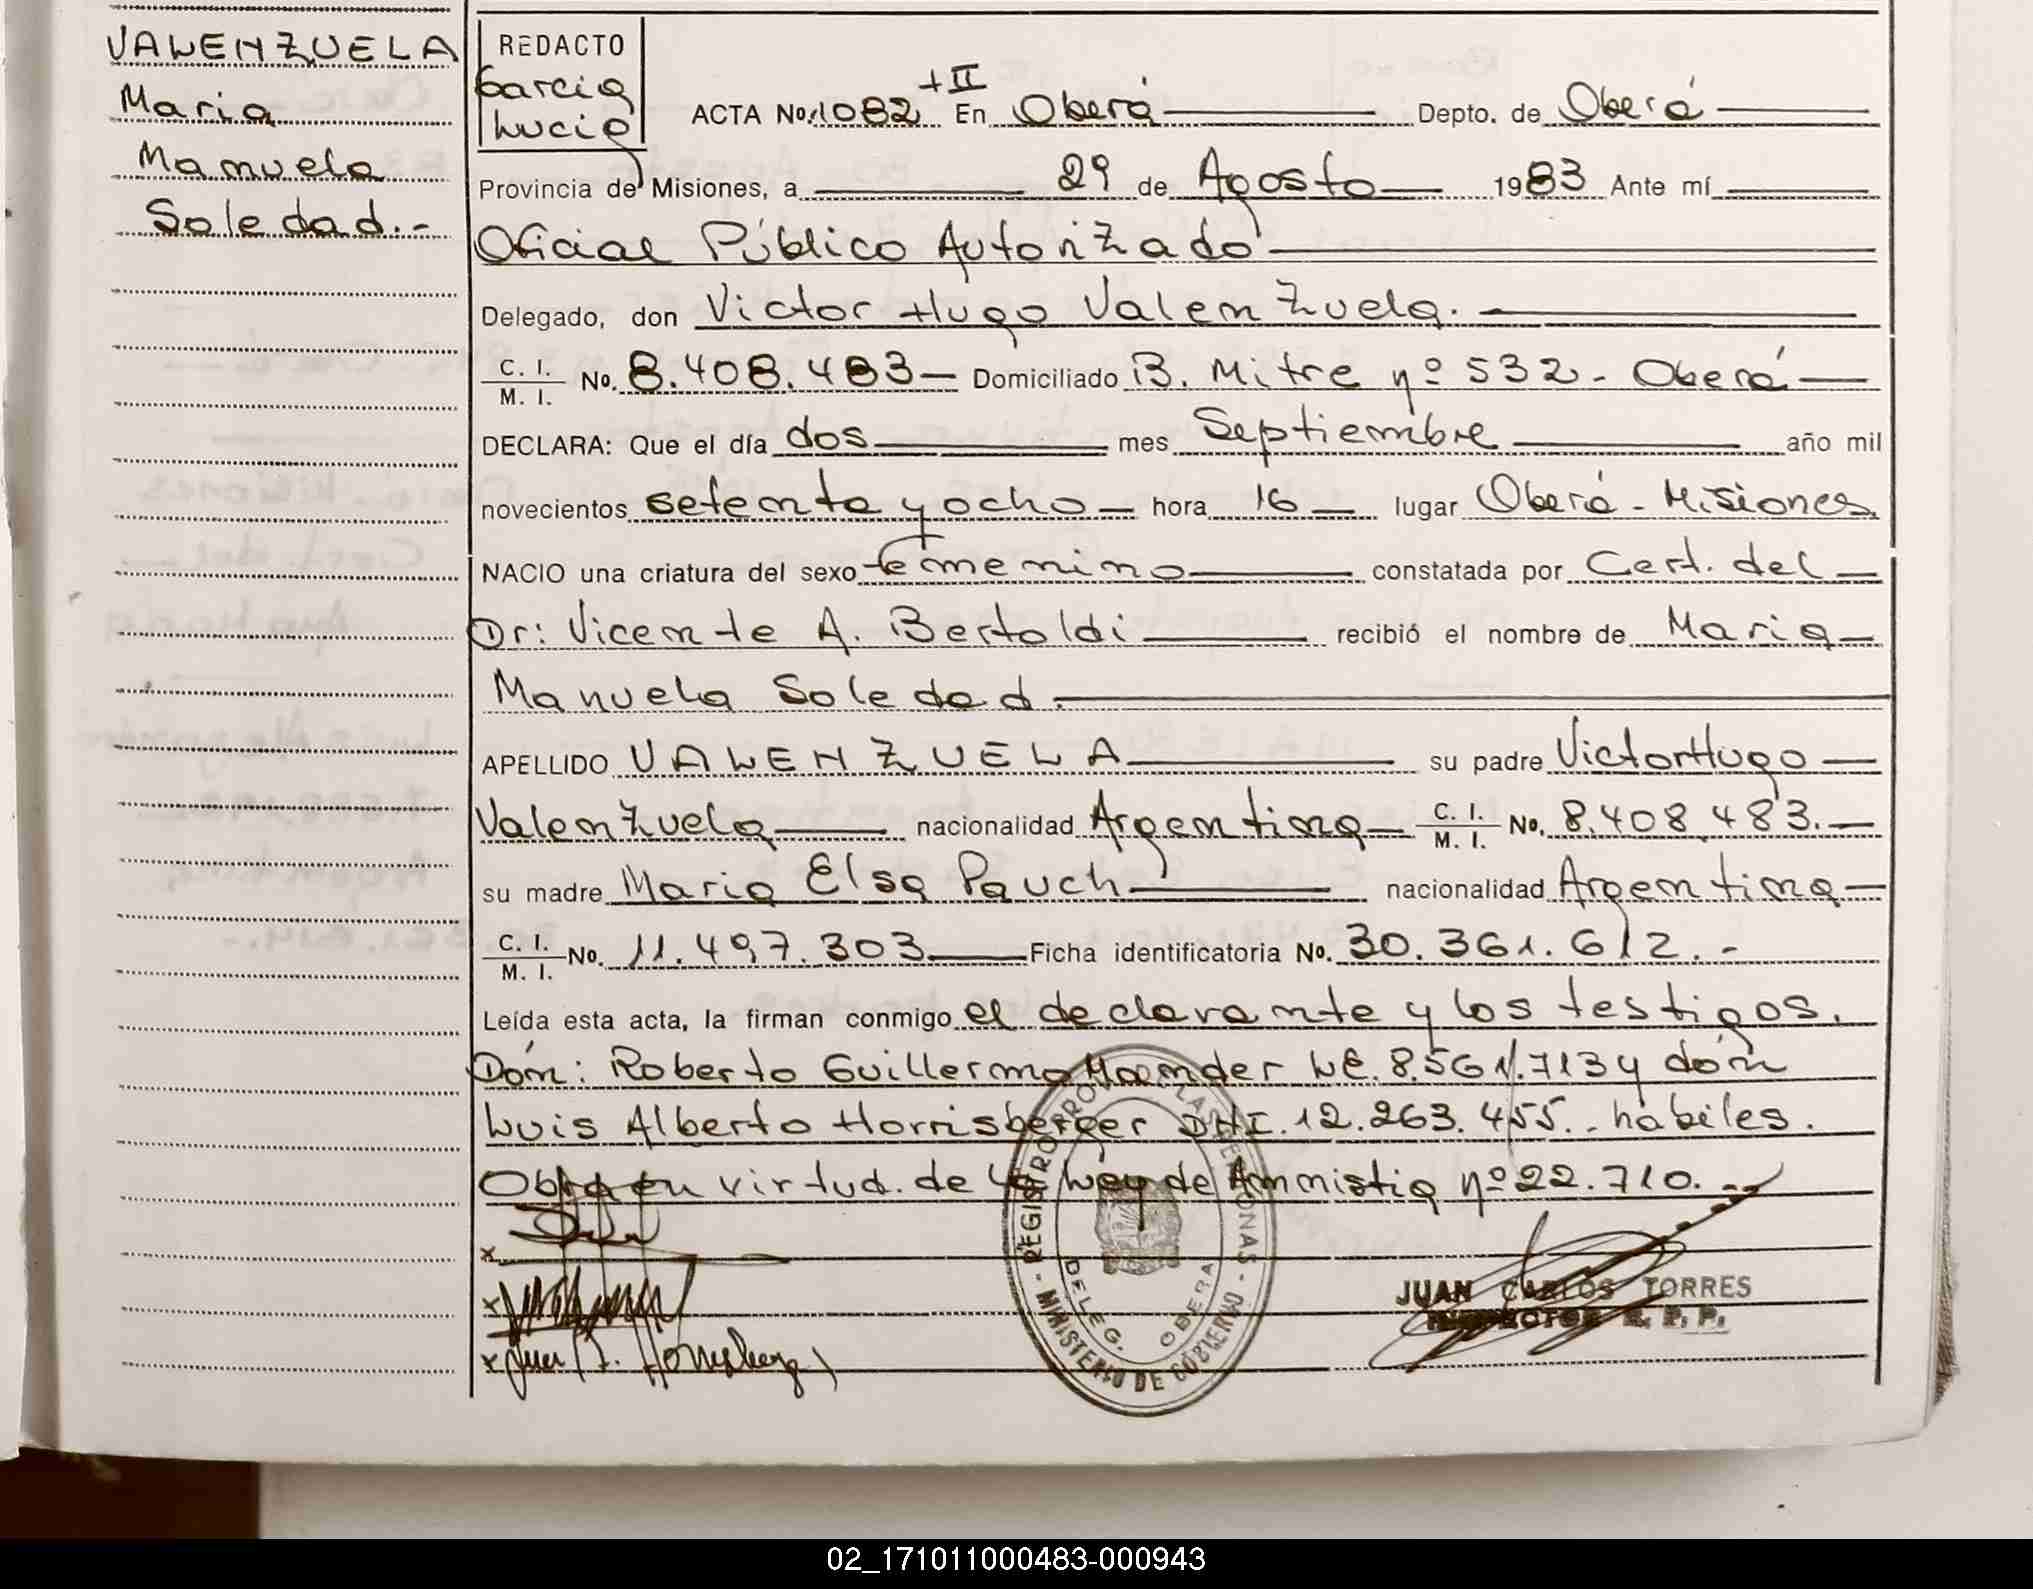 VALENZUELA
Maria
Manuela
Soledad.-
REDACTO
Garcia
Lucia
ACTA No. 1082 +II En Oberá Depto. de Oberá
Provincia de Misiones, a 29 de Agosto 1983 Ante mí
Oficial Público Autorizado
Delegado, don Victor Hugo Valenzuela.
C. I. / M. I. No. 8.408.483 Domiciliado B. Mitre nº 532 - Oberá
DECLARA: Que el día dos mes Septiembre año mil
novecientos setenta y ocho hora 16 lugar Oberá - Misiones
NACIO una criatura del sexo femenino constatada por Cert. del
Dr: Vicente A. Bertoldi recibió el nombre de Maria
Manuela Soledad
APELLIDO VALENZUELA su padre Victor Hugo
Valenzuela nacionalidad Argentina C. I. / M. I. No. 8.408.483.
su madre Maria Elsa Pauch nacionalidad Argentina
C. I. / M. I. No. 11.497.303 Ficha identificatoria No. 30.361.612.-
Leída esta acta, la firman conmigo el declarante y los testigos.
Dón: Roberto Guillermo LE. 8.561.713 y dón
Luis Alberto Horrisberger DNI. 12.263.455.- hábiles.
Obra en virtud. de la Ley de Amnistia nº 22.710.--
x
x
x
REGISTRO PROV. DE LAS PERSONAS - MINISTERIO DE GOBIERNO -
DELEG. OBERA
JUAN CARLOS TORRES
INSPECTOR R. P. P.
02_171011000483-000943